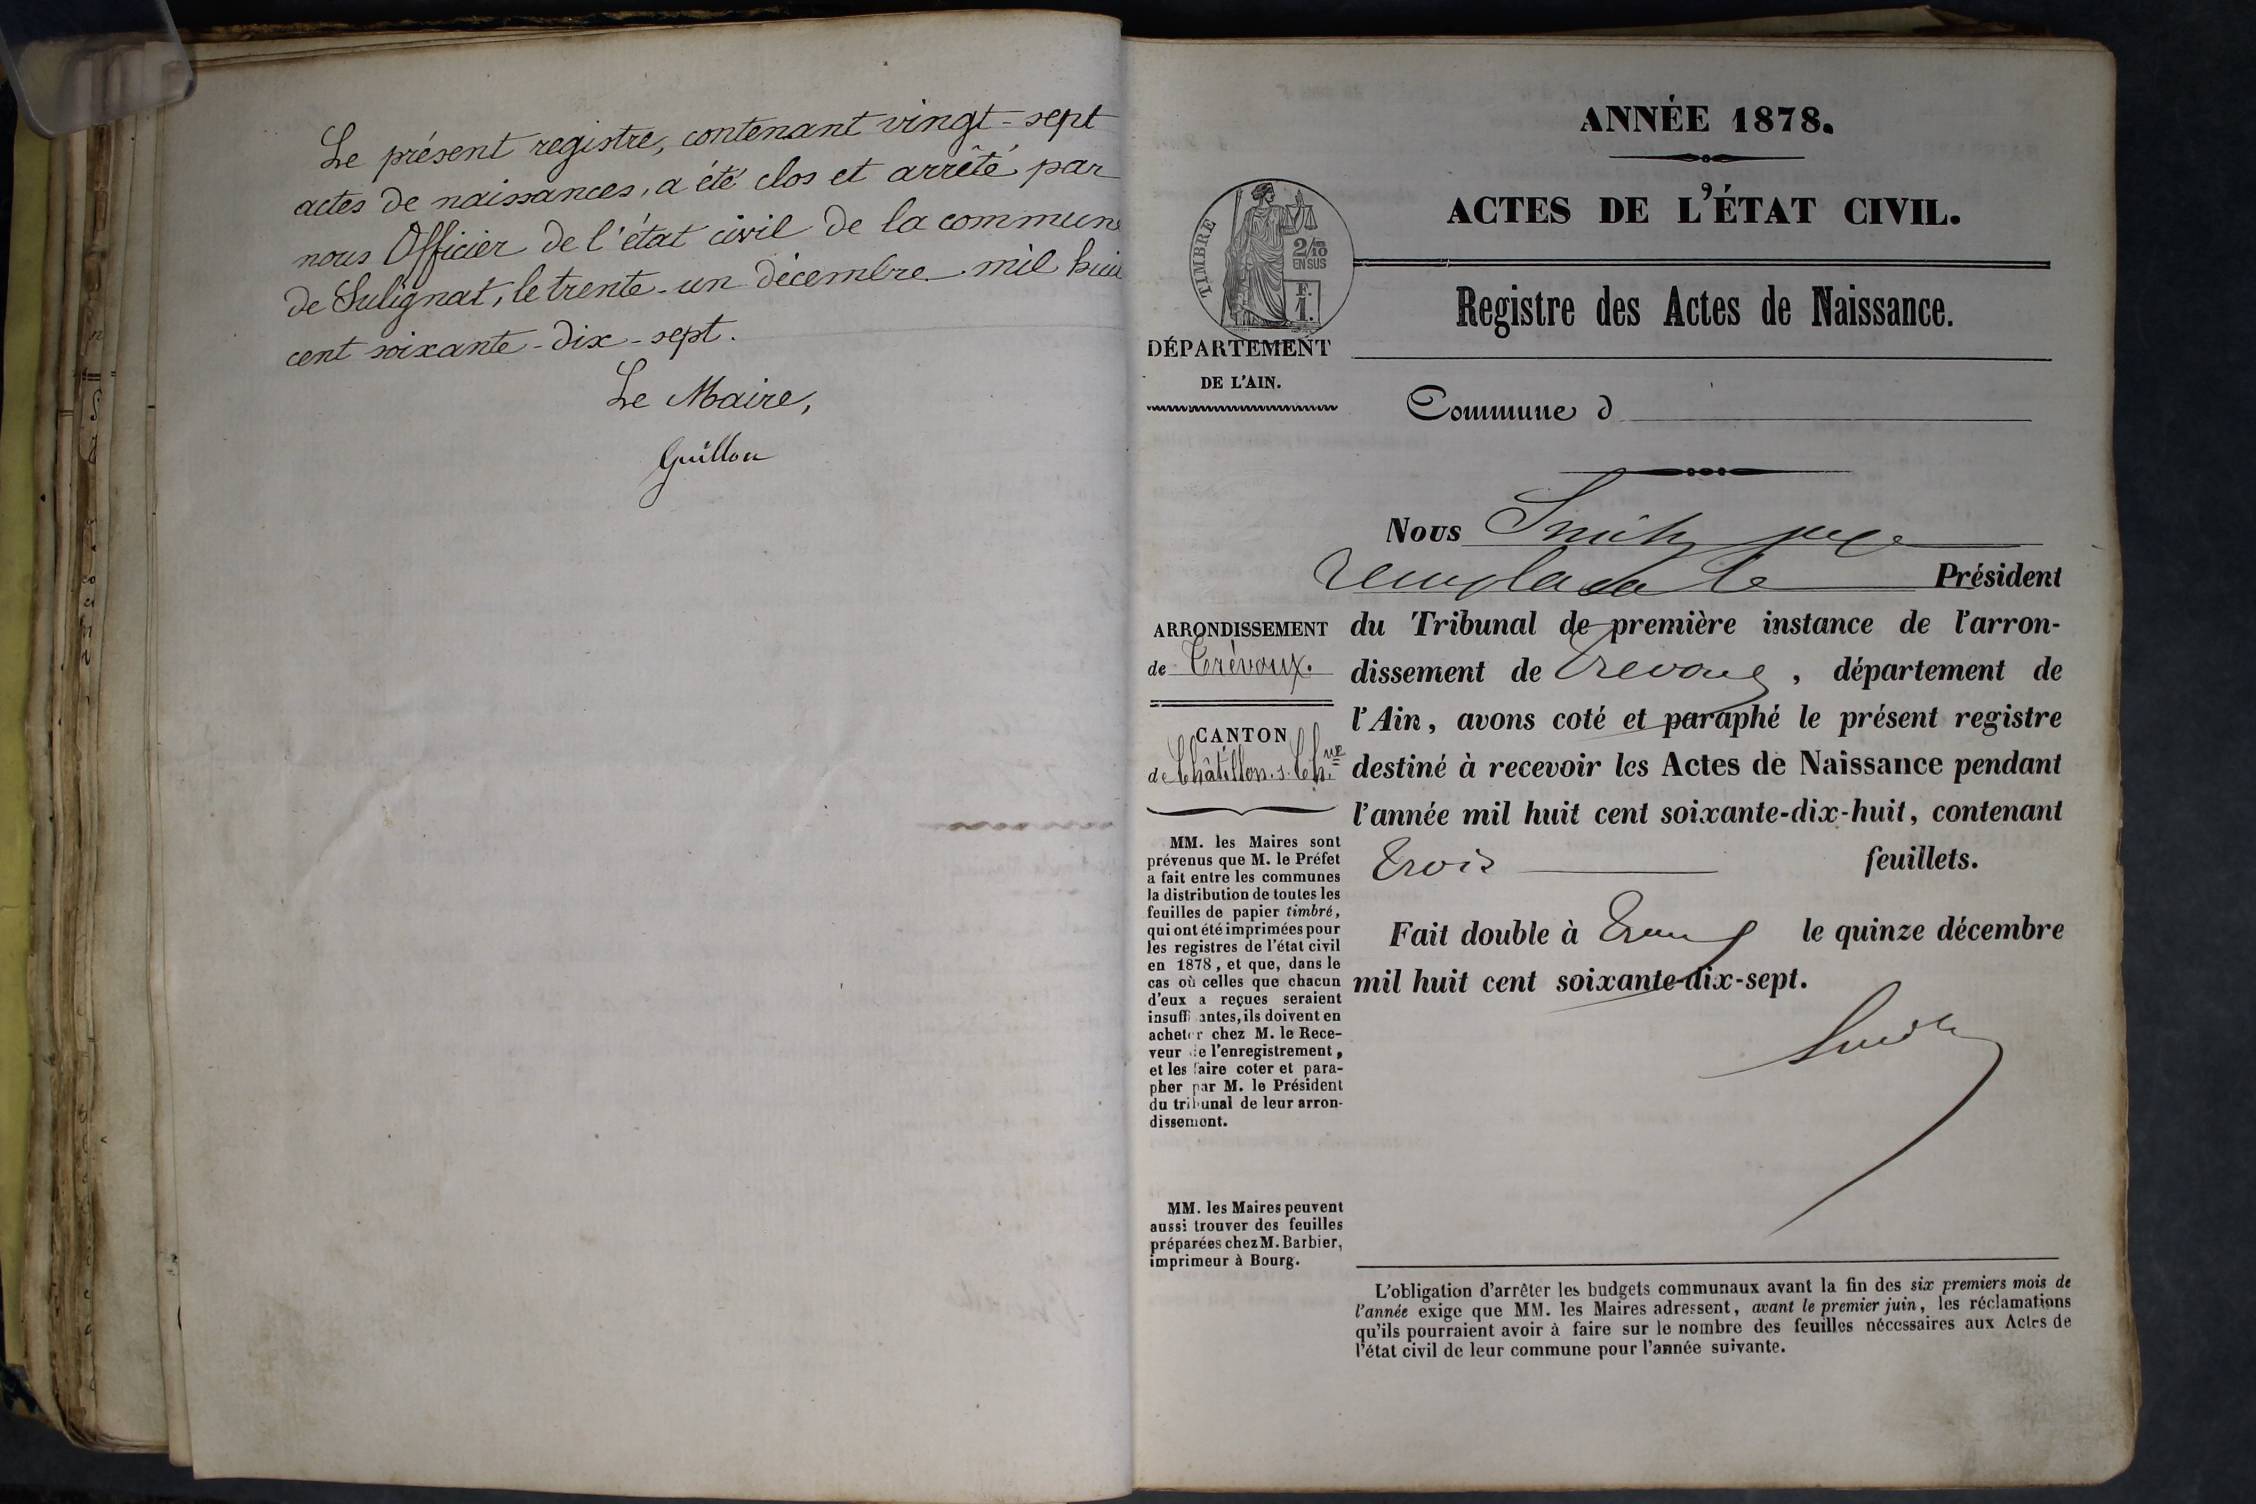 Le présent registre, contenant vingt-sept
actes de naissances, a été clos et arrêté par
nous Officier de l'état civil de la commune
de Sulignat, le trente-un décembre mil huit
cent soixante-dix-sept.
Le Maire,
Guillon
ANNÉE 1878.
ACTES DE L'ÉTAT CIVIL.
TIMBRE
2/10
EN SUS
F.
1.
Registre des Actes de Naissance.
DÉPARTEMENT
DE L'AIN.
Commune d
Nous Smith juge
remplaçant le Président
du Tribunal de première instance de l'arron-
dissement de Trévoux, département de
l'Ain, avons coté et paraphé le présent registre
destiné à recevoir les Actes de Naissance pendant
l'année mil huit cent soixante-dix-huit, contenant
trois feuillets.
Fait double à Trévoux le quinze décembre
mil huit cent soixante-dix-sept.
Smith
ARRONDISSEMENT
de Trévoux.
CANTON
de Châtillon-s-Ch.ne
MM. les Maires sont
prévenus que M. le Préfet
a fait entre les communes
la distribution de toutes les
feuilles de papier timbré,
qui ont été imprimées pour
les registres de l'état civil
en 1878, et que, dans le
cas où celles que chacun
d'eux a reçues seraient
insuffisantes, ils doivent en
acheter chez M. le Rece-
veur de l'enregistrement,
et les faire coter et para-
pher par M. le Président
du tribunal de leur arron-
dissement.
MM. les Maires peuvent
aussi trouver des feuilles
préparées chez M. Barbier,
imprimeur à Bourg.
L'obligation d'arrêter les budgets communaux avant la fin des six premiers mois de
l'année exige que MM. les Maires adressent, avant le premier juin, les réclamations
qu'ils pourraient avoir à faire sur le nombre des feuilles nécessaires aux Actes de
l'état civil de leur commune pour l'année suivante.